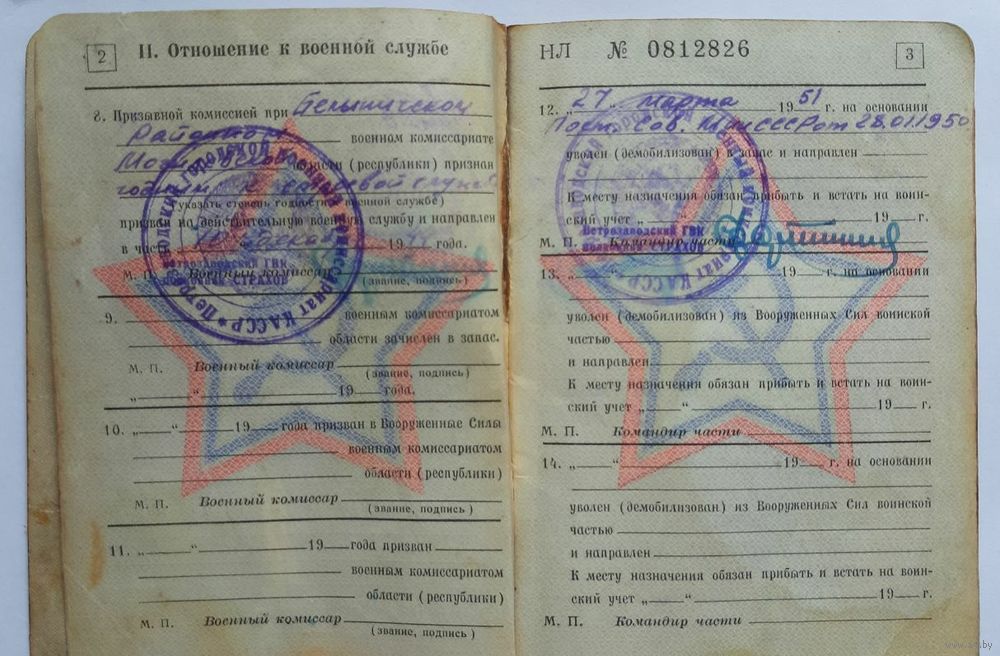 2
II. Отношение к военной службе
8. Призывной комиссией при Белыничском
Районном военном комиссариате
области (республики) признан
(указать степень годности к военной службе)
призван на действительную военную службу и направлен
в часть 19 года.
М. П. Военный комиссар
(звание, подпись)
Петрозаводский ГВК
полковник СТРАХОВ
9. военным комиссариатом
области зачислен в запас.
М. П. Военный комиссар
(звание, подпись)
„ “ 19 года.
10. „ “ 19 года призван в Вооруженные Силы
военным комиссариатом
области (республики)
М. П. Военный комиссар
(звание, подпись)
11. „ “ 19 года призван
военным комиссариатом
области (республики)
М. П. Военный комиссар
(звание, подпись)
НЛ № 0812826
3
12. „27“ марта 1951 г. на основании
Пост. Сов. Мин СССР от 28.01.1950
уволен (демобилизован) в запас и направлен
К месту назначения обязан прибыть и встать на воин-
ский учет „ “ 19 г.
М. П. Командир части
Петрозаводский ГВК
полковник СТРАХОВ
13. „ “ 19 г. на основании
уволен (демобилизован) из Вооруженных Сил воинской
частью
и направлен
К месту назначения обязан прибыть и встать на воин-
ский учет „ “ 19 г.
М. П. Командир части
14. „ “ 19 г. на основании
уволен (демобилизован) из Вооруженных Сил воинской
частью
и направлен
К месту назначения обязан прибыть и встать на воин-
ский учет „ “ 19 г.
М. П. Командир части